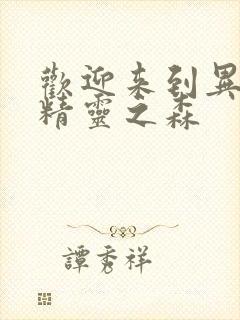 歡迎来到異
精靈之森
譚秀祥